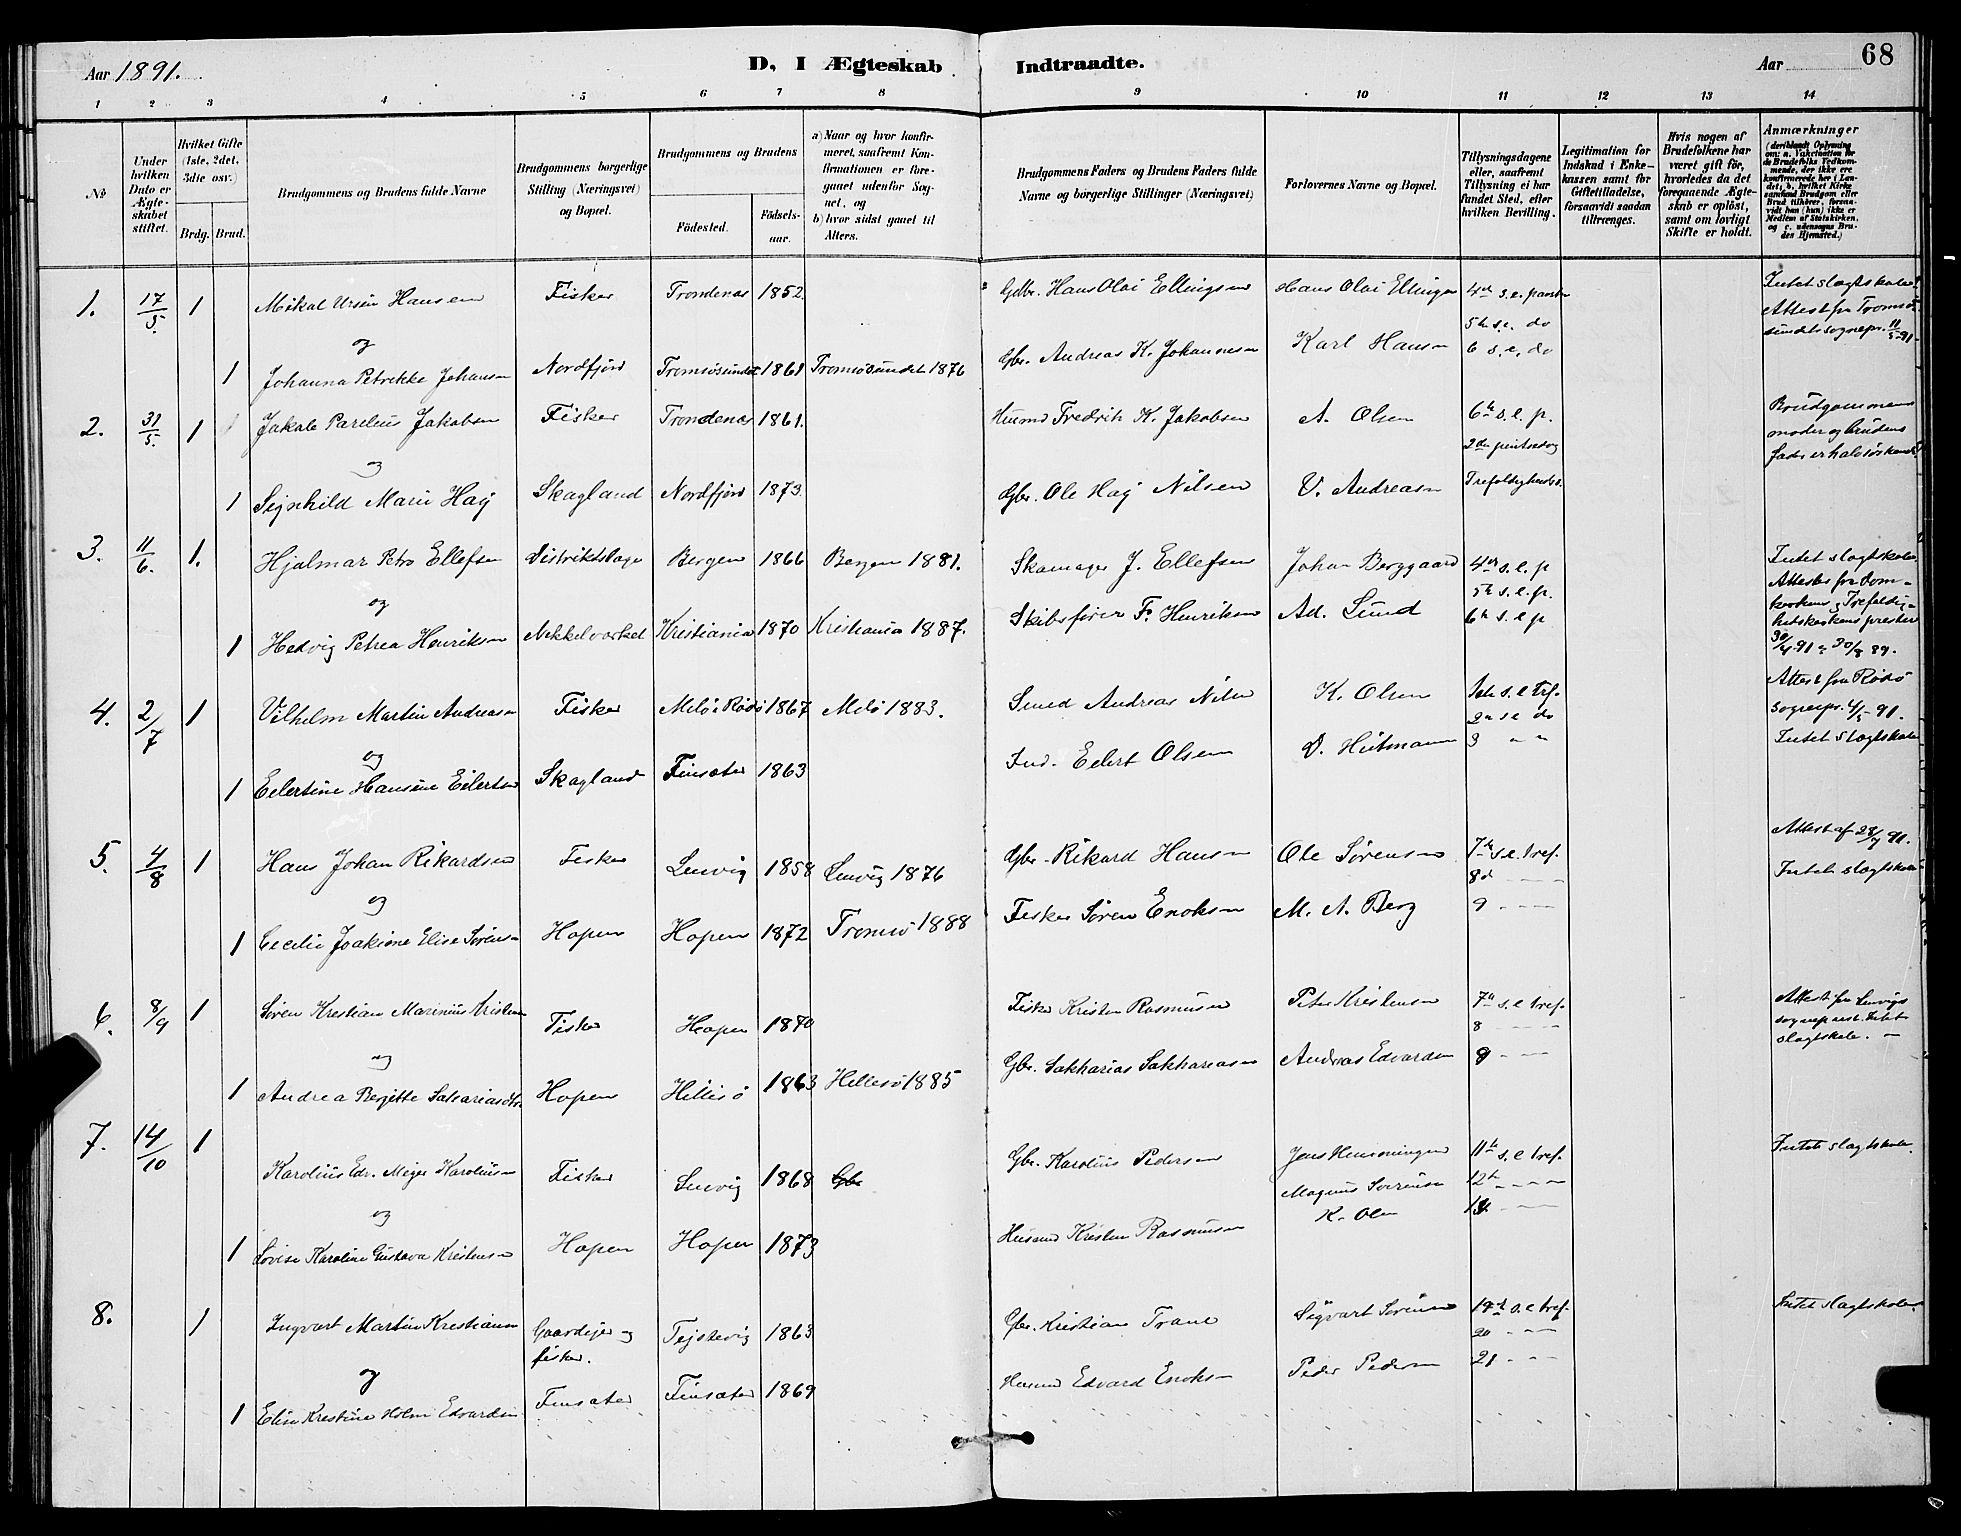 Aar 1891. D, I Ægteskab Indtraadte. Aar 68
1 2 3 4 5 6 7 8 9 10 11 12 13 14
№
Under
hvilken
Dato er
Ægte-
skabet
stiftet.
Hvilket Gifte
(1ste, 2det,
3die osv.)
Brdg. Brud.
Brudgommens og Brudens fulde Navne
Brudgommens borgerlige
Stilling (Næringsvei)
og Bopæl.
Brudgommens og Brudens
Fødested.
Fødsels-
aar.
a) Naar og hvor konfir-
meret, saafremt Kon-
firmationen er fore-
gaaet udenfor Sog-
net, og
b) hvor sidst gaaet til
Alters.
Brudgommens Faders og Brudens Faders fulde
Navne og borgerlige Stillinger (Næringsvei)
Forlovernes Navne og Bopæl.
Tillysningsdagene
eller, saafremt
Tillysning ei har
fundet Sted, efter
hvilken Bevilling.
Legitimation for
Indskud i Enke-
kassen samt for
Giftetilladelse,
forsaavidt saadan
tiltrænges.
Hvis nogen af
Brudefolkene har
været gift før,
hvorledes da det
foregaaende Ægte-
skab er opløst,
samt om lovligt
Skifte er holdt.
Anmærkninger
(deriblandt Oplysning
om: a. Vakcination for
de Brudefolks Vedkom-
mende, der ikke ere
konfirmerede her i Lan-
det; b. hvilket Kirke-
samfund Brudgom eller
Brud tilhører, forsaa-
vidt han (hun) ikke er
Medlem af Statskirken,
og c. udensogns Bru-
den Hjemsted.)
1. 17/5 1 Mikal Ursin Hansen Fisker Trondenes 1852. Gdbr. Hans Olai Ellingsen Hans Olai Ellingsen 4de s.e. paaske Intet slægtskab.
5te s.e. do Attest fra Tromsø-
og Karl Hansen 6 s.e. do sundets sognepr. 11/5 91
1 Johanna Petrikke Johansen Nordfjord Tromsøsundet 1861 Tromsøsundet 1876 Gbr. Andreas K. Johannesen
2. 31/5. 1 Jakob Parelius Jakobsen Fisker Trondenes 1861. Husmd Fredrik K. Jakobsen A. Olsen 6te s.e. p. Brudgommens
2den pintsedag moder og brudens
og fader er halvsøskende
1 Signhild Marie Hag Skagland Nordfjord 1873. Gbr. Ole Hag Nilsen V. Andreasen Trefoldighedss.
3. 11/6. 1. Hjalmar Petro Ellefsen Distriktslæge Bergen 1866 Bergen 1881. Skomager J. Ellefsen Johan Berggaard 4de s.e. p Intet slægtskab
5te s.e. p. Attester fra Dom-
og kirkens og Trefoldig-
1 Hedvig Petrea Henriksen Nikkelværket Kristiania 1870 Kristiania 1887. Skibsfører F. Henriksen Ad. Lund 6te s.e. p hedskirkens prester
30/4 91 & 30/8 89.
4. 2/7 1 Vilhelm Martin Andreasen Fisker Melø i Rødø 1867 Melø 1883. Smed Andreas Nilsen K. Olsen 1ste s.e. tref. Attest fra Rødø
2den s.e. do sognepr. 4/5 91.
og D. Hutmann 3 " " Intet slægtskab
1 Eilertine Hansine Eilertsen Skagland Finsæter 1863 Ind. Eilert Olsen
5. 4/8 1 Hans Johan Rikardsen Fisker Lenvig 1858 Lenvig 1876 Gbr. Rikard Hansen Ole Sørensen 7de s.e. tref. Attest af 28/7 91.
8de Intet slægtskab
og
1 Cecilie Joakime Elise Sørensen Hopen Hopen 1872 Tromsø 1888 Fisker Søren Enoksen M. A. Berg 9
6. 8/9 1 Søren Kristian Marinius Kristensen Fisker Hopen 1870 Fisker Kristen Rasmussen Peter Kristensen 7de s.e. tref. Attest fra Lenvigs
8 sogneprest. Intet
og slægtskab.
1 Andrea Bergitte Sakariasdtr. Hopen Hillesø 1863 Hillesø 1885 Gbr. Sakharias Sakhariasen Andreas Edvardsen 9
7. 14/10 1 Karolius Edv. Meyer Karoliussen Fisker Lenvig 1868 Gbr. Gbr. Karolius Pedersen Jens Henningsen 11te s.e. tref. Intet slægtskab.
Magnus Sørensen 12te
og K. Olsen 13
1 Lovise Karoline Gustava Kristensen Hopen Hopen 1873 Husmd Kristen Rasmussen
8. 1 Ingvart Martin Kristiansen Gaardejer og Tejstevig 1863 Gbr. Kristian Trane Sigvart Sørensen 19de s.e. tref. Intet slægtskab.
fisker. 20
og Peder Pedersen 21
1 Elise Kristine Holm Edvardsen Finsæter Finsæter 1869 Husmd Edvard Enoksen